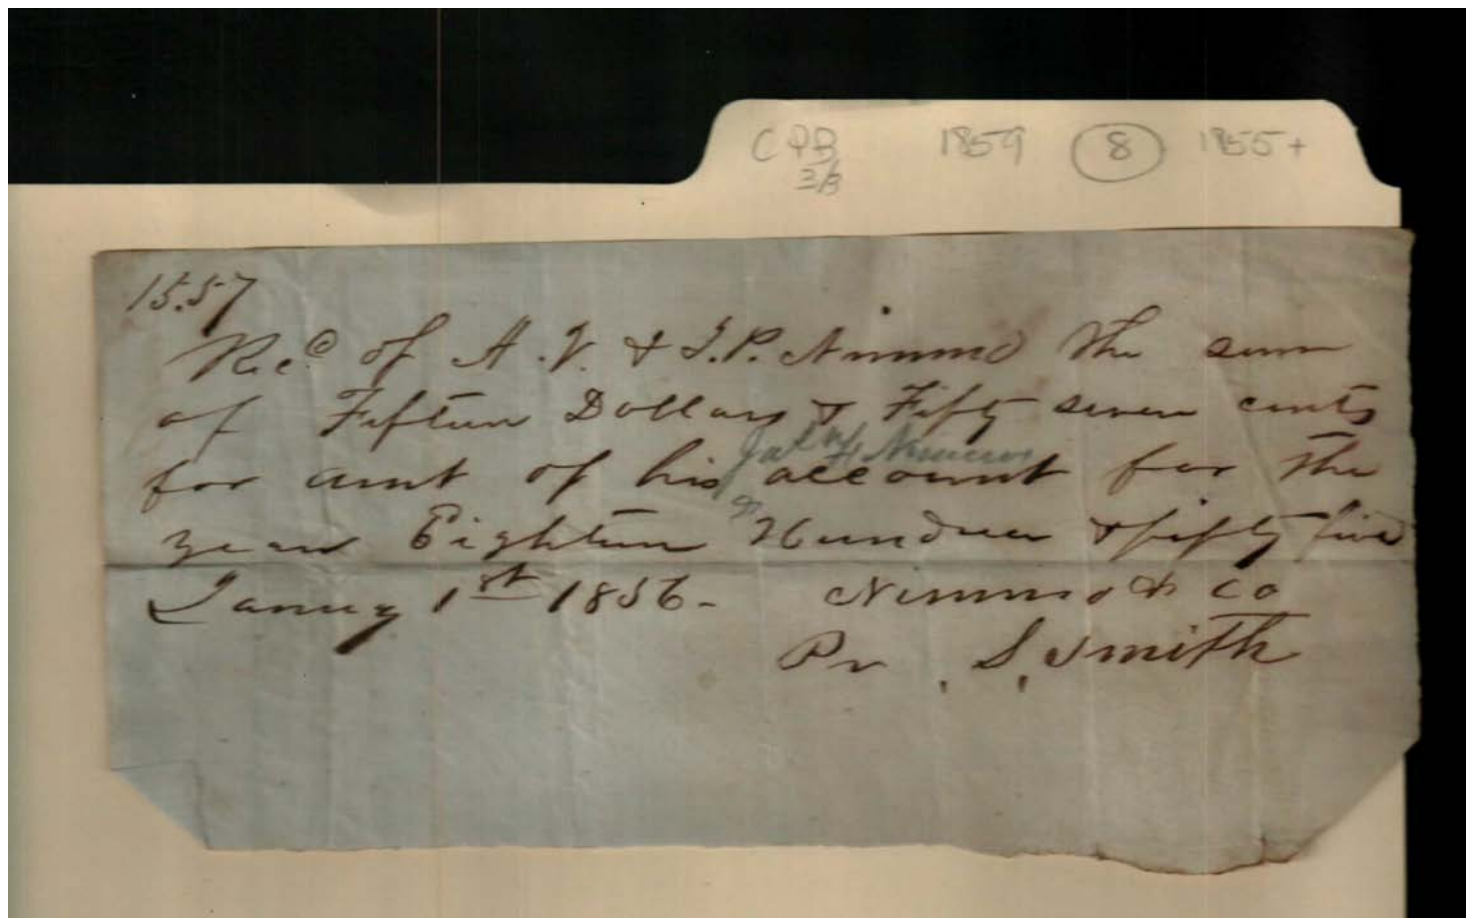 CPB 1859 8 1855+
2/3
15.57
Recd of A. V. & J. P. Nimmo the sum
of Fifteen Dollars & Fifty seven cents
for amt of his account for the
year Eighteen Hundred & fifty five
Januy 1st 1856. Nimmo & Co
Pr S. Smith